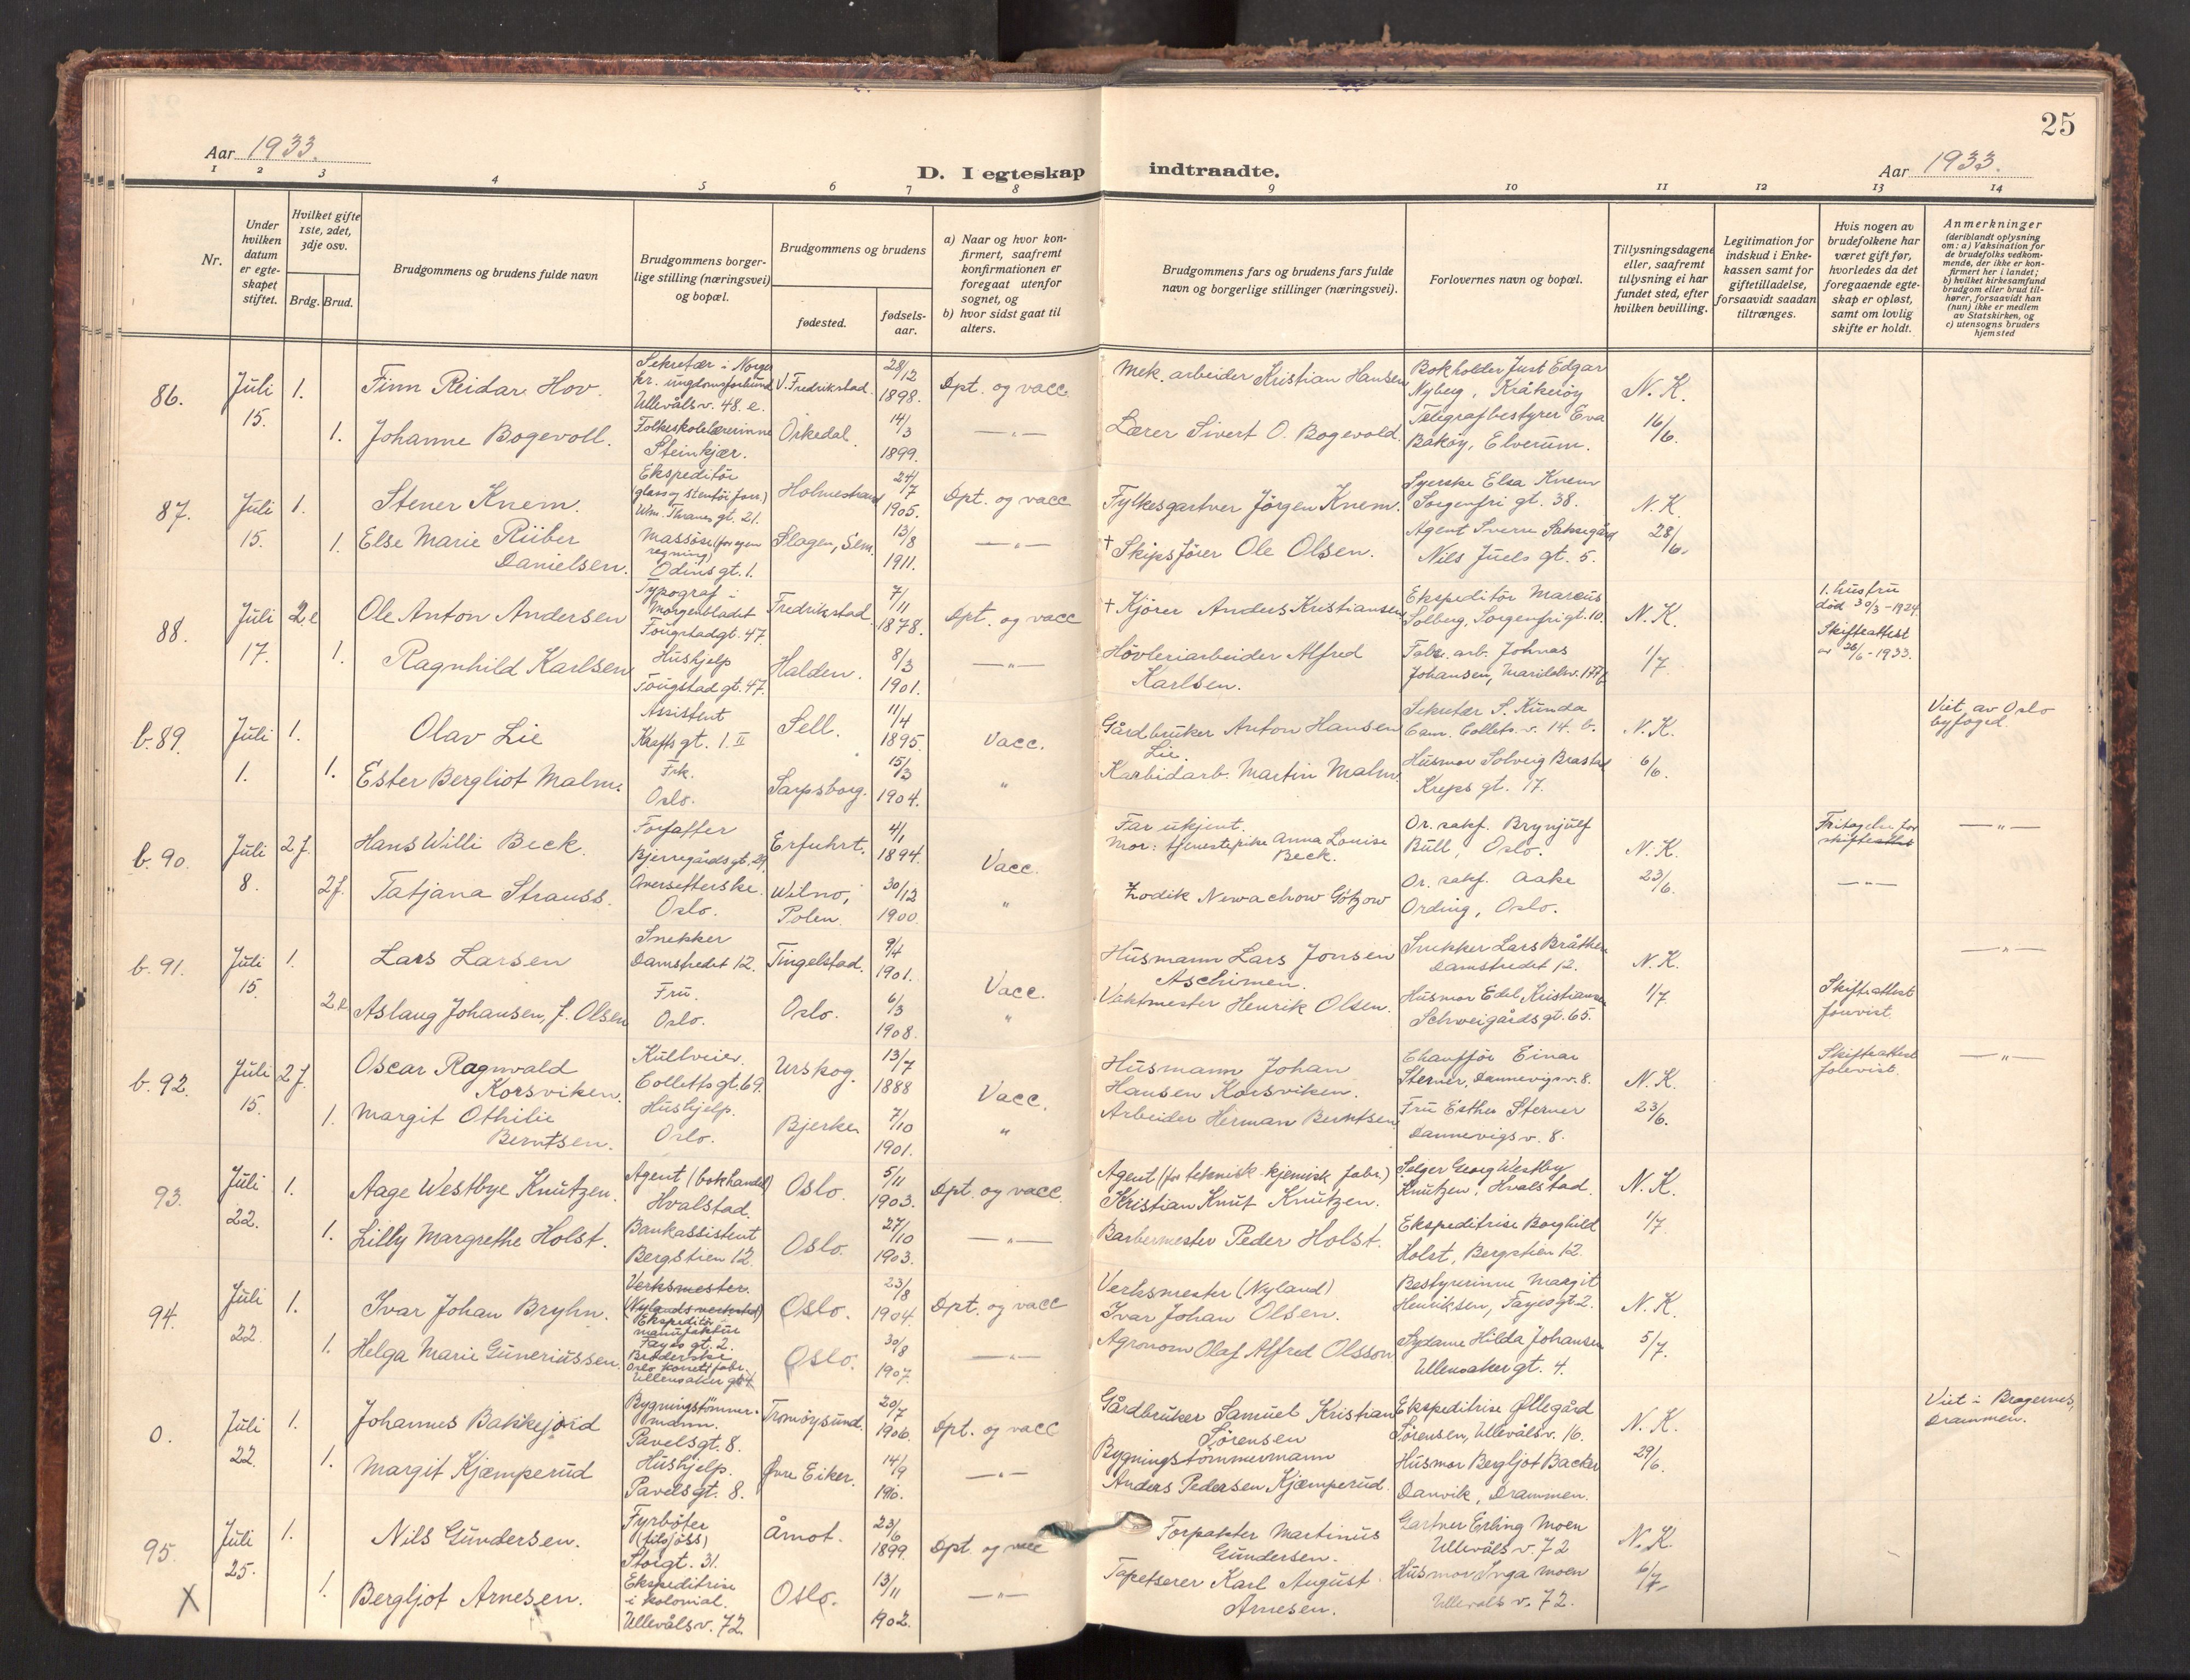 25
Aar 1933.
D. I egteskap indtraadte.
Aar 1933.
1 2 3 4 5 6 7 8 9 10 11 12 13 14
Nr.
Under hvilken datum er egteskapet stiftet.
Hvilket gifte 1ste, 2det, 3dje osv.
Brdg. Brud.
Brudgommens og brudens fulde navn
Brudgommens borgerlige stilling (næringsvei) og bopæl.
Brudgommens og brudens
fødested.
fødselsaar.
a) Naar og hvor konfirmert, saafremt konfirmationen er foregaat utenfor sognet, og
b) hvor sidst gaat til alters.
Brudgommens fars og brudens fars fulde navn og borgerlige stillinger (næringsvei).
Forlovernes navn og bopæl.
Tillysningsdagene eller, saafremt tillysning ei har fundet sted, efter hvilken bevilling.
Legitimation for indskud i Enkekassen samt for giftetilladelse, forsaavidt saadan tiltrænges.
Hvis nogen av brudefolkene har været gift før, hvorledes da det foregaaende egteskap er opløst, samt om lovlig skifte er holdt.
Anmerkninger
(deriblandt oplysning om: a) Vaksination for de brudefolks vedkommende, der ikke er konfirmert her i landet;
b) hvilket kirkesamfund brudgom eller brud tilhører, forsaavidt han (hun) ikke er medlem av Statskirken, og
c) utensogns bruders hjemsted
86. Juli 15. 1. Finn Reidar Hov. Sekretær i Norges kr. ungdomsforbund Ullevålsv. 48. e. V. Fredrikstad. 28/12 1898. Dpt. og vacc. Mek. arbeider Kristian Hansen Bokholder Just Edgar Nyberg, Kråkerøy N. K.
1. Johanne Bogevoll. Folkeskolelærerinne Steinkjær. Orkedal. 14/3 1899. —"— Lærer Sivert O. Bogevold. Telegrafbestyrer Eva Bakøy, Elverum. 16/6.
87. Juli 15. 1. Stener Knem. Ekspeditør (glass og stentøi forr.) Wlm. Thranes gt. 21. Holmestrand 24/7 1905. Dpt. og vacc Fylkesgartner Jörgen Knem. Syerske Elsa Knem Sorgenfri gt. 38. N. K.
1. Else Marie Rüber Danielsen. Massøse (for egen regning) Odins gt. 1. Slagen, Sem. 13/8 1911. —"— † Skipsfører Ole Olsen. Agent Sverre Saksegård Nils Juels gt. 5. 28/6.
88. Juli 17. 2e Ole Anton Andersen Typograf i Morgenbladet Fougstadgt. 47. Fredrikstad. 7/11 1878. Dpt. og vacc † Kjører Anders Kristiansen Ekspeditör Marcus Solberg, Sorgenfrigt. 10. N. K. 1. hustru død 30/3-1924. Skifteattest av 26/6-1933.
1. Ragnhild Karlsen Hushjelp Fougstad gt. 47. Halden. 8/3 1901. —"— Høvleriarbeider Alfred Karlsen. Fabr. arb. Johnas Johansen, Maridalsv. 177 1/7.
b. 89. Juli 1. 1. Olav Lie Assistent Krafts gt. 1. II Sell. 11/4 1895. Vacc. Gårdbruker Anton Hansen Lie. Sekretær S. Kunda Cam. Collets v. 14. b. N. K. Viet av Oslo byfoged.
1. Ester Bergliot Malm. Frk. Oslo. Sarpsborg. 15/3 1904. " Karbidarb. Martin Malm Husmor Solveig Brastad Kreps gt. 17. 6/6.
b. 90. Juli 8. 2 f. Hans Willi Beck. Forfatter Bjerregårds gt. 29. Erfuhrt. 4/1 1894. Vacc. Far ukjent. Mor: tjenestepike Anna Louise Beck. Or. sakf. Brynjulf Bull, Oslo. N. K. Fritagelse for skifteattest —"—
2 f. Tatjana Strauss. Oversetterske. Oslo. Wilno, Polen 30/12 1900. " Zodik Newachow Götzow Or. sakf. Aake Ording, Oslo. 23/6. —"—
b. 91. Juli 15. 1. Lars Larsen Snekker Damstredet 12. Tingelstad. 9/4 1901. Vacc. Husmann Lars Jonsen Aschimen. Snekker Lars Bråthen Damstredet 12. N. K. —"—
2e. Aslaug Johansen, f. Olsen Fru. Oslo. Oslo. 6/3 1908. " Vaktmester Henrik Olsen. Husmor Edel Kristiansen Schweigårds gt. 65. 1/7 Skifteattest forevist.
b. 92. Juli 15. 2 f. Oscar Ragnvald Korsviken. Kullveier. Colletts gt. 69. Urskog. 13/7 1888 Vacc. Husmann Johan Hansen Korsviken. Chauffør Einar Sterner, Dannevigsv. 8. N. K. Skifteattest forevist. —"—
1. Margit Othilie Berntsen. Hushjelp. Oslo. Bjerke. 7/10 1901. " Arbeider Herman Berntsen. Fru Esther Sterner Dannevigs v. 8. 23/6.
93. Juli 22. 1. Aage Westbye Knutzen. Agent (bokhandel) Hvalstad. Oslo. 5/11 1903. Dpt. og vacc. Agent (for teknisk-kjemisk fabr.) Kristian Knut Knutzen. Selger Georg Westby Knutzen, Hvalstad. N. K.
1. Lilly Margrethe Holst. Bankassistent Bergstien 12. Oslo. 27/10 1903. —"— Barbermester Peder Holst. Ekspeditrise Borghild Holst, Bergstien 12. 1/7
94. Juli 22. 1. Ivar Johan Bryhn. Verksmester. (Nylands verksted) Ekspeditör i manufaktur Fayes gt. 2. Oslo. 23/8 1904. Dpt. og vacc Verksmester (Nyland) Ivar Johan Olsen. Bestyrerinne Margit Henriksen, Fayes gt. 2. N. K.
1. Helga Marie Guneriussen. Broderske Oslo korsettfabr. Ullensaker gt. 4. Oslo. 30/8 1907. —"— Agronom Olaf Alfred Olsson Sydame Hilda Johansen Ullensaker gt. 4. 5/7.
0. Juli 22. 1. Johannes Bakkejord Bygningstømmermann. Pavels gt. 8. Tromøysund. 20/7 1906. Dpt. og vacc Gårdbruker Samuel Kristian Sørensen Ekspeditrise Øllegård Sørensen, Ullevålsv. 16. N. K. Viet i Bragernes, Drammen.
1. Margit Kjæmperud Hushjelp. Pavels gt. 8. Øvre Eiker. 14/9 —"— Bygningstømmermann Anders Pedersen Kjæmperud. Husmor Bergljot Backer Danvik, Drammen. 29/6.
95. Juli 25. 1. Nils Gundersen. Fyrbøter (tilsjøss) Storgt. 31. Åmot. 23/6 1899. Dpt. og vacc Forpakter Martinus Gundersen. Gartner Erling Moen Ullevåls v. 72 N. K.
X 1. Bergljot Arnesen. Ekspeditrise i kolonial. Ullevålsv. 72. Oslo. 13/11 1902. —"— Tapetserer Karl August Arnesen. Husmor Inga Moen Ullevåls v. 72. 6/7.